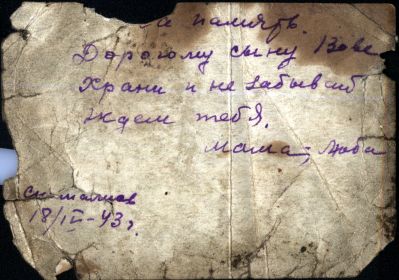 На память.
Дорогому сыну Вове
Храни и не забывай
ждем тебя.
Мама, Люба
18/II-43 г.